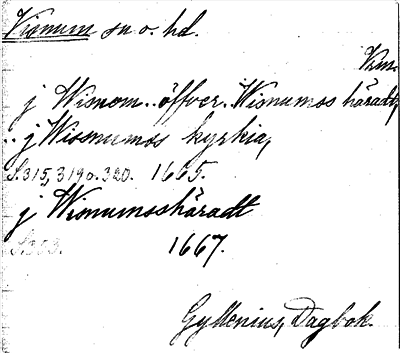 Visnum sn o. hd.
Vrm.
j Wisnom .. öffver. Wisnumss häradt,
.. j Wissnumss kyrkia,
S. 315, 319 o. 320. 1665.
j Wisnumsshäradt
1667.
Gyllenius, Dagbok.